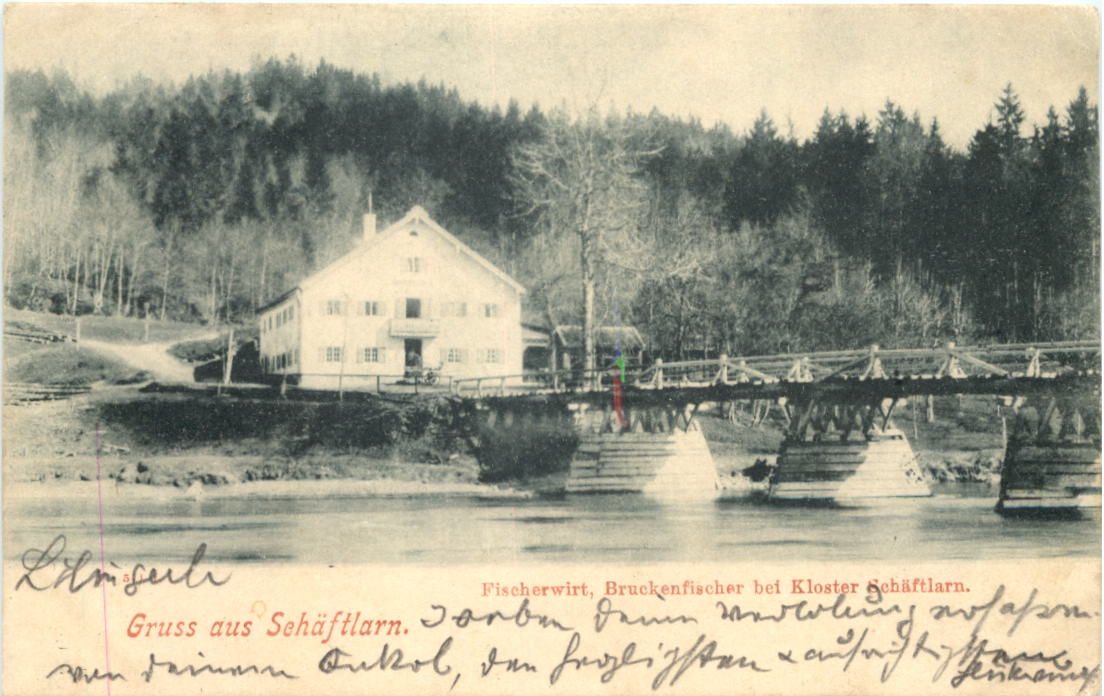 Fischerwirt, Bruckenfischer bei Kloster Schäftlarn.
Gruss aus Schäftlarn.
Soeben deine Verlobung erfahren
von deinem Onkel, den herzlichsten & aufrichtigsten